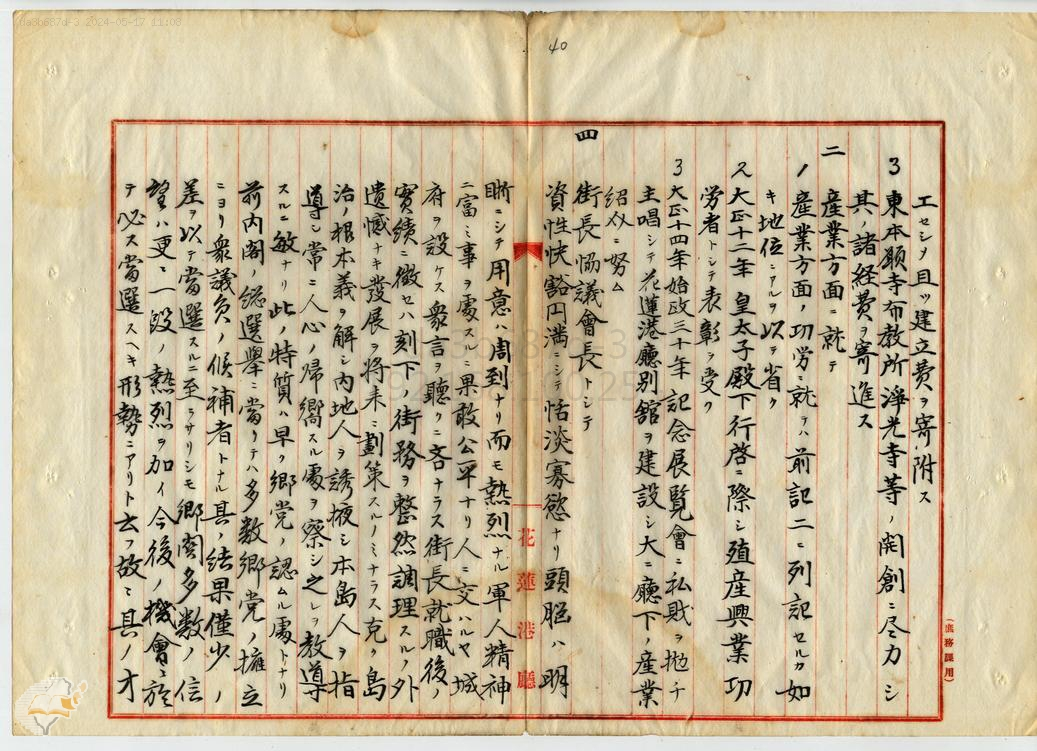 40
エセシメ且ツ建立費ヲ寄附ス
3 東本願寺布教所淨光寺等ノ開創ニ尽力シ
其ノ諸経費ヲ寄進ス
二
産業方面ニ就テ
1 産業方面ノ功労ニ就テハ前記二ニ列記セルカ如
キ地位ニアルヲ以テ省ク
2 大正十二年 皇太子殿下行啓ニ際シ殖産興業功
労者トシテ表彰ヲ受ク
3 大正十四年始政三十年記念展覧會ニ私財ヲ抛チ
主唱シテ花蓮港廳別舘ヲ建設シ大ニ廳下ノ産業
紹介ニ努ム
四
街長協議會長トシテ
資性快豁円満ニシテ恬淡寡慾ナリ頭脳ハ明
花蓮港廳
晰ニシテ用意ハ周到ナリ而モ熱烈ナル軍人精神
ニ富ミ事ヲ處スルニ果敢公平ナリ人ニ交ハルヤ城
府ヲ設ケス衆言ヲ聽クニ吝ナラス街長就職後ノ
實績ニ徴セハ刻下ノ街務ヲ整然調理スルノ外
遺憾ナキ發展ヲ将来ニ劃策スルノミナラス克ク島
治ノ根本義ヲ解シ内地人ヲ誘掖シ本島人ヲ指
導シ常ニ人心ノ帰嚮スル處ヲ察シ之レヲ教導
スルニ敏ナリ此ノ特質ハ早ク郷党ノ認ムル處トナリ
前内閣ノ総選舉ニ當リテハ多数郷党ノ擁立
ニヨリ衆議員ノ候補者トナル其ノ結果僅少ノ
差ヲ以テ當選スルニ至ラサリシモ郷関多数ノ信
望ハ更ニ一段ノ熱烈ヲ加イ今後ノ機會ニ於
テ必ス當選スヘキ形勢ニアリト云フ故ニ其ノ才
(庶務課用)